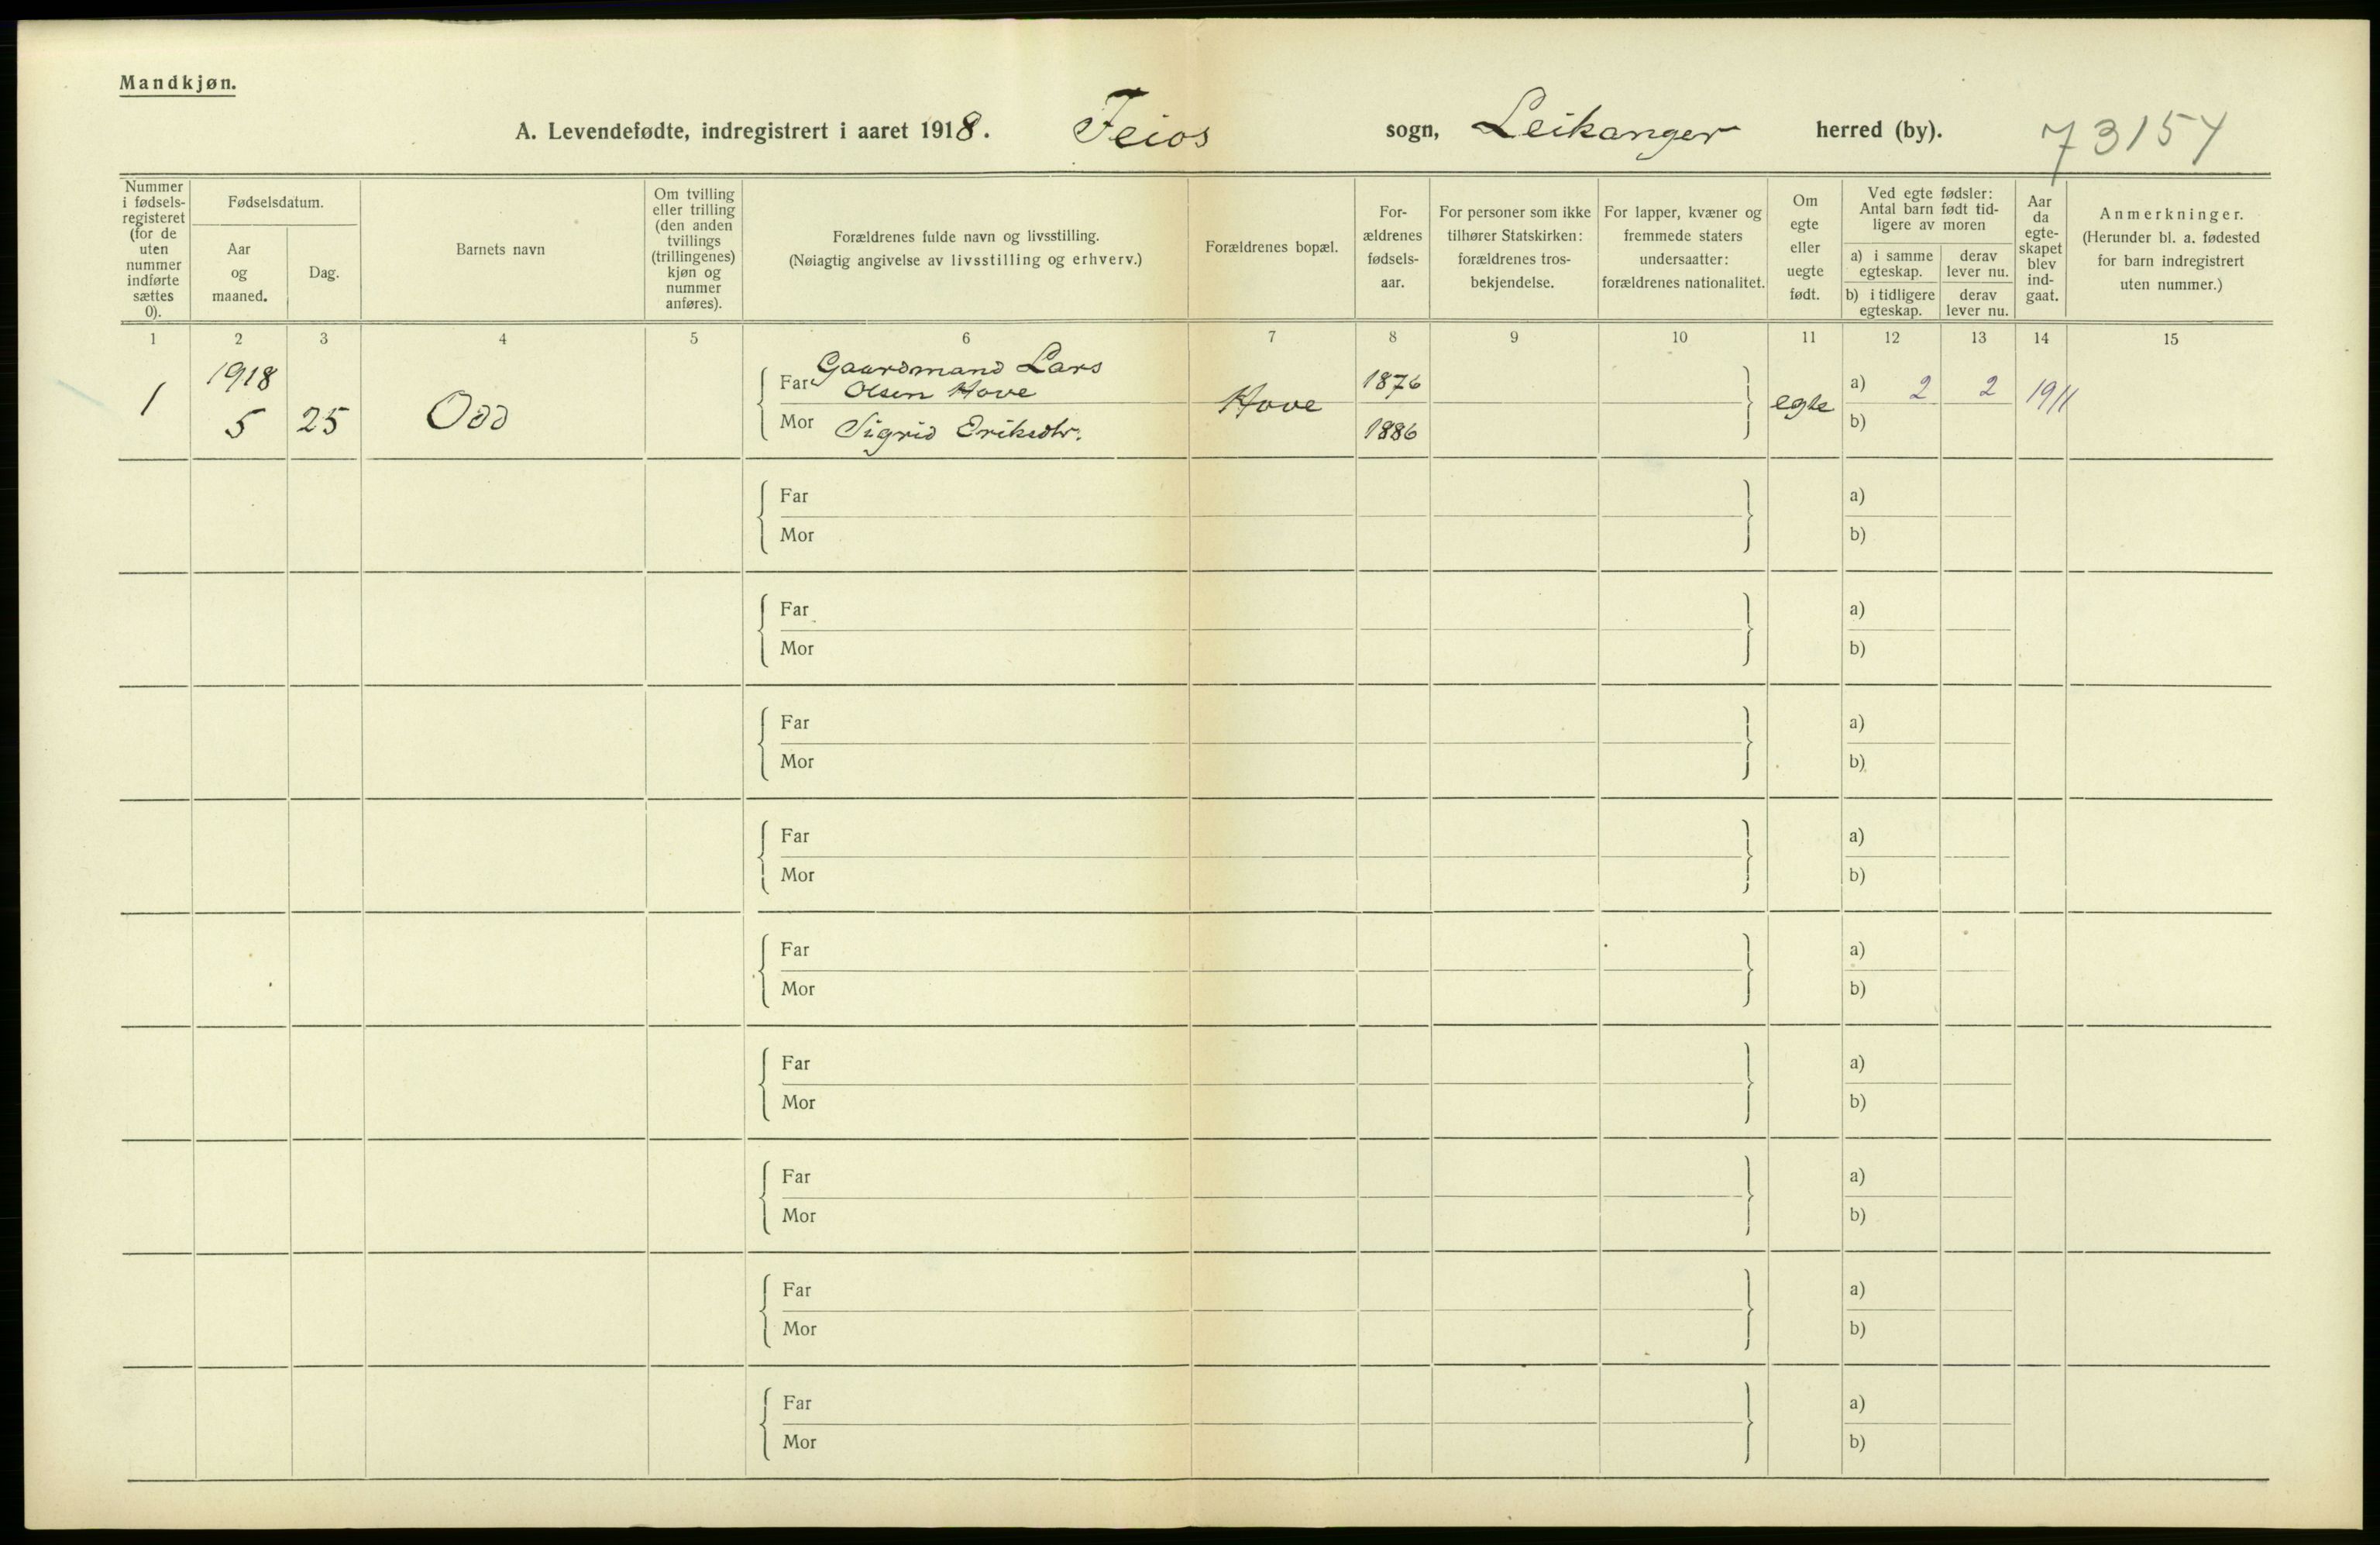 Mandkjøn.
A. Levendefødte, indregistrert i aaret 1918. Feios sogn, Leikanger herred (by). 73154
Nummer
i fødsels-
registeret
(for de
uten
nummer
indførte
sættes
0).
Fødselsdatum.
Aar
og
maaned.
Dag.
Barnets navn
Om tvilling
eller trilling
(den anden
tvillings
(trillingenes)
kjøn og
nummer
anføres).
Forældrenes fulde navn og livsstilling.
(Nøiagtig angivelse av livsstilling og erhverv.)
Forældrenes bopæl.
For-
ældrenes
fødsels-
aar.
For personer som ikke
tilhører Statskirken:
forældrenes tros-
bekjendelse.
For lapper, kvæner og
fremmede staters
undersaatter:
forældrenes nationalitet.
Om
egte
eller
uegte
født.
Ved egte fødsler:
Antal barn født tid-
ligere av moren
a) i samme
egteskap.
derav
lever nu.
b) i tidligere
egteskap.
derav
lever nu.
Aar
da
egte-
skapet
blev
ind-
gaat.
Anmerkninger.
(Herunder bl. a. fødested
for barn indregistrert
uten nummer.)
1 2 3 4 5 6 7 8 9 10 11 12 13 14 15
1
1918
5
25
Odd
Far Gaardmand Lars
Olsen Hove
Mor Sigrid Eriksdtr.
Hove
1876
1886
egte
a) 2 2
b)
1911
Far a)
Mor b)
Far a)
Mor b)
Far a)
Mor b)
Far a)
Mor b)
Far a)
Mor b)
Far a)
Mor b)
Far a)
Mor b)
Far a)
Mor b)
Far a)
Mor b)